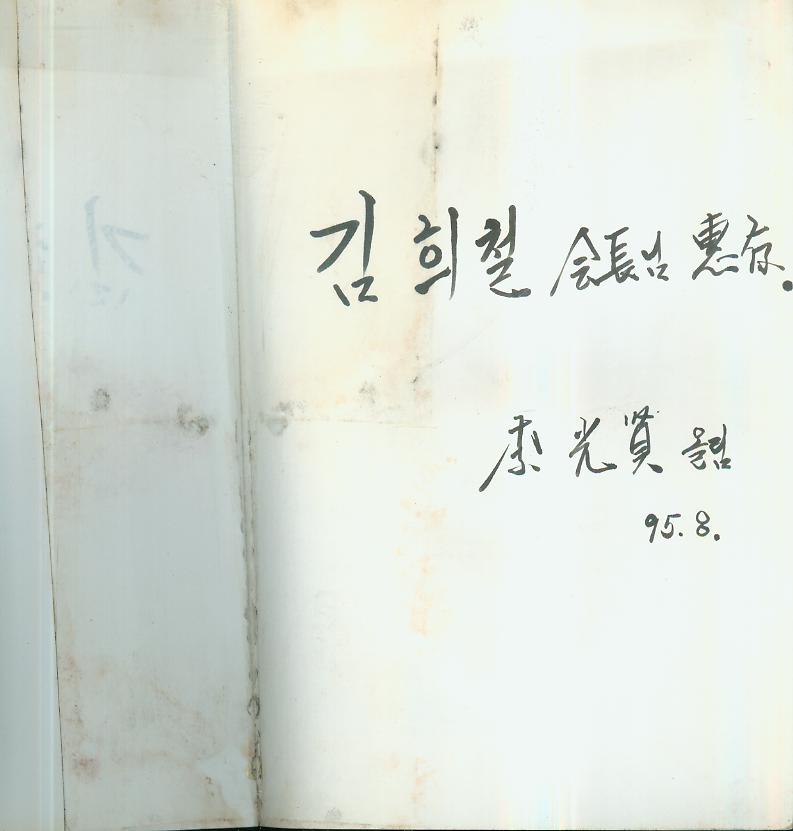 김 희철 会長님 惠存.
光賢 올림
95.8.